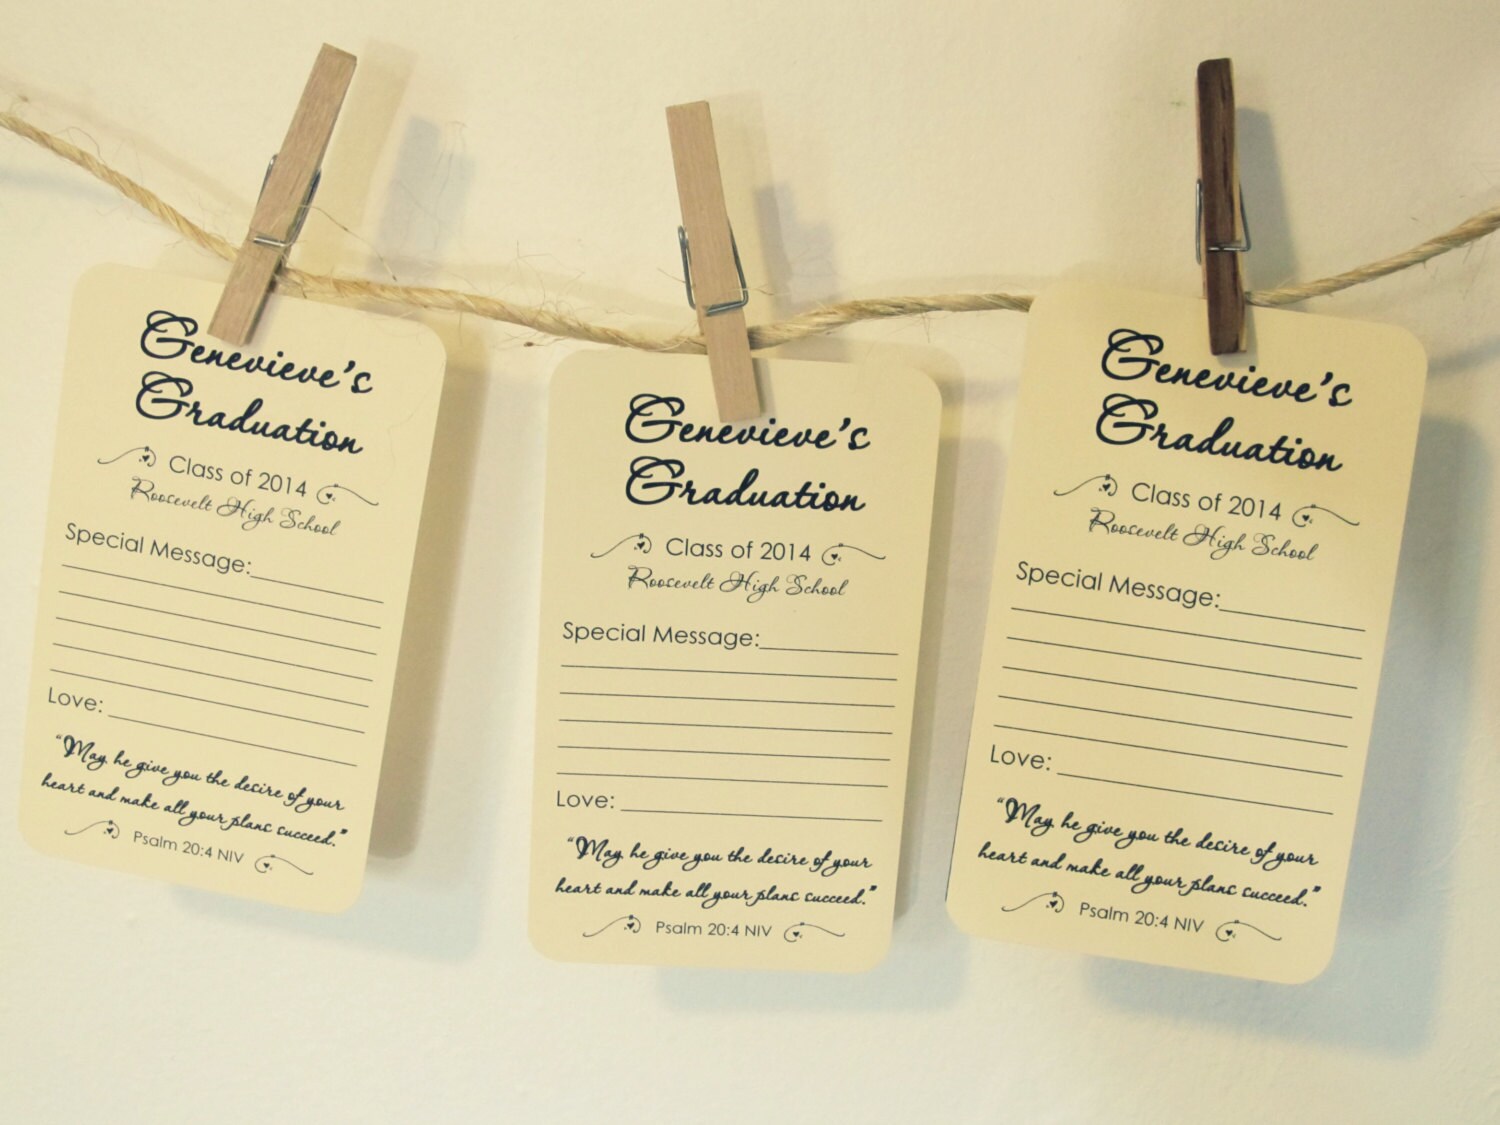 Genevieve's
Graduation
Class of 2014
Roosevelt High School
Special Message:
Love:
"May he give you the desire of your
heart and make all your plans succeed."
Psalm 20:4 NIV
Genevieve's
Graduation
Class of 2014
Roosevelt High School
Special Message:
Love:
"May he give you the desire of your
heart and make all your plans succeed."
Psalm 20:4 NIV
Genevieve's
Graduation
Class of 2014
Roosevelt High School
Special Message:
Love:
"May he give you the desire of your
heart and make all your plans succeed."
Psalm 20:4 NIV